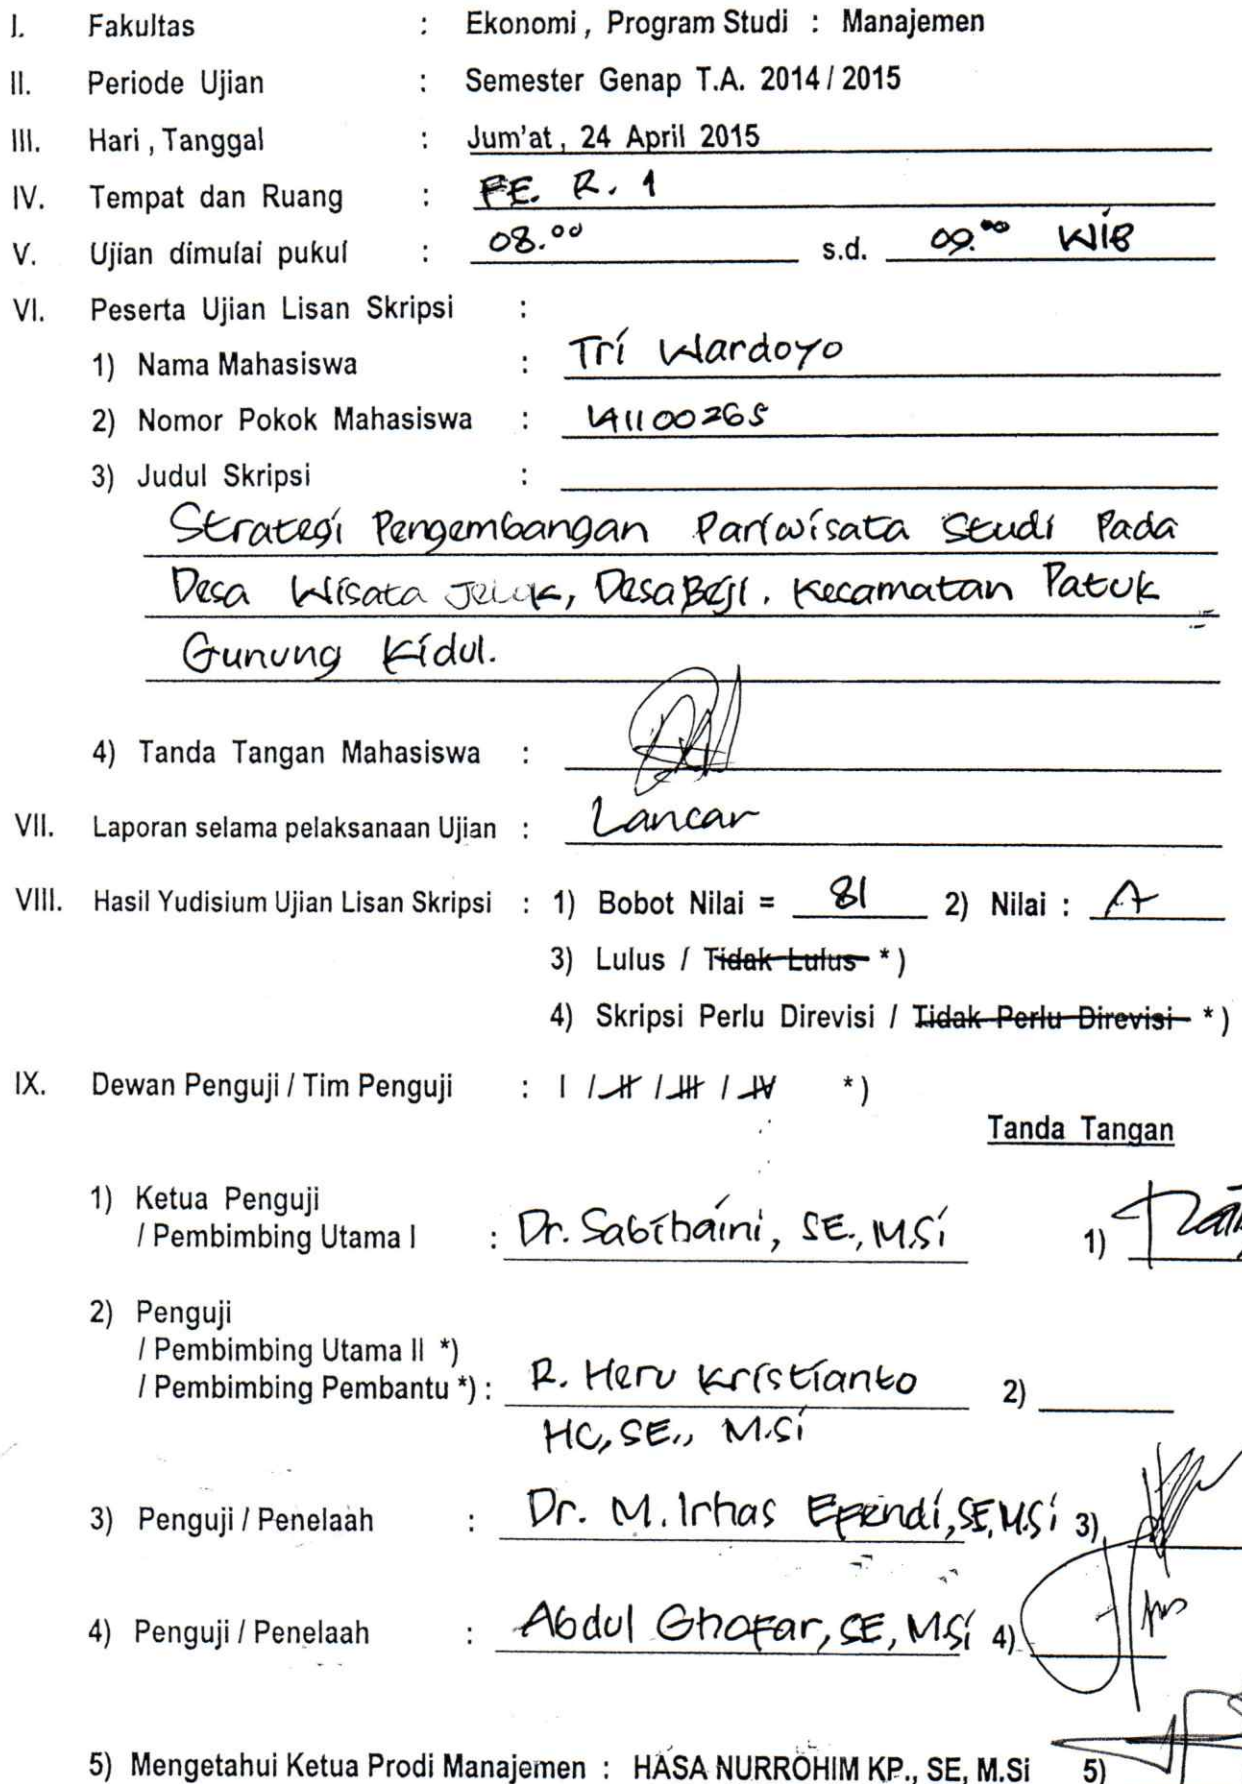 I. Fakultas : Ekonomi, Program Studi : Manajemen
II. Periode Ujian : Semester Genap T.A. 2014 / 2015
III. Hari, Tanggal : Jum'at, 24 April 2015
IV. Tempat dan Ruang : FE. R. 1
V. Ujian dimulai pukul : 08.00 s.d. 09.00 WIB
VI. Peserta Ujian Lisan Skripsi :
1) Nama Mahasiswa : Tri Wardoyo
2) Nomor Pokok Mahasiswa : 141100265
3) Judul Skripsi :
Strategi Pengembangan Pariwisata Studi Pada
Desa Wisata Jelok, Desa Beji, Kecamatan Patuk
Gunung Kidul.
4) Tanda Tangan Mahasiswa :
VII. Laporan selama pelaksanaan Ujian : Lancar
VIII. Hasil Yudisium Ujian Lisan Skripsi : 1) Bobot Nilai = 81 2) Nilai : A
3) Lulus / Tidak Lulus *)
4) Skripsi Perlu Direvisi / Tidak Perlu Direvisi *)
IX. Dewan Penguji / Tim Penguji : I / II / III / IV *)
Tanda Tangan
1) Ketua Penguji
/ Pembimbing Utama I : Dr. Sabihaini, SE., M.Si 1)
2) Penguji
/ Pembimbing Utama II *)
/ Pembimbing Pembantu *) : R. Heru Kristianto 2)
HC, SE., M.Si
3) Penguji / Penelaah : Dr. M. Irhas Effendi, SE, M.Si 3)
4) Penguji / Penelaah : Abdul Ghofar, SE, M.Si 4)
5) Mengetahui Ketua Prodi Manajemen : HASA NURROHIM KP., SE, M.Si 5)